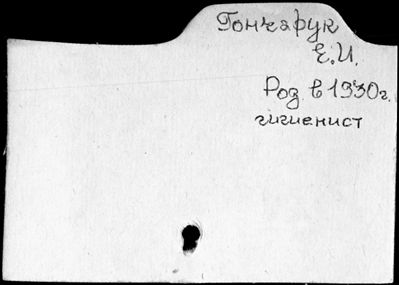 Гончарук
Е.И.
Род. в 1930г.
гигиенист